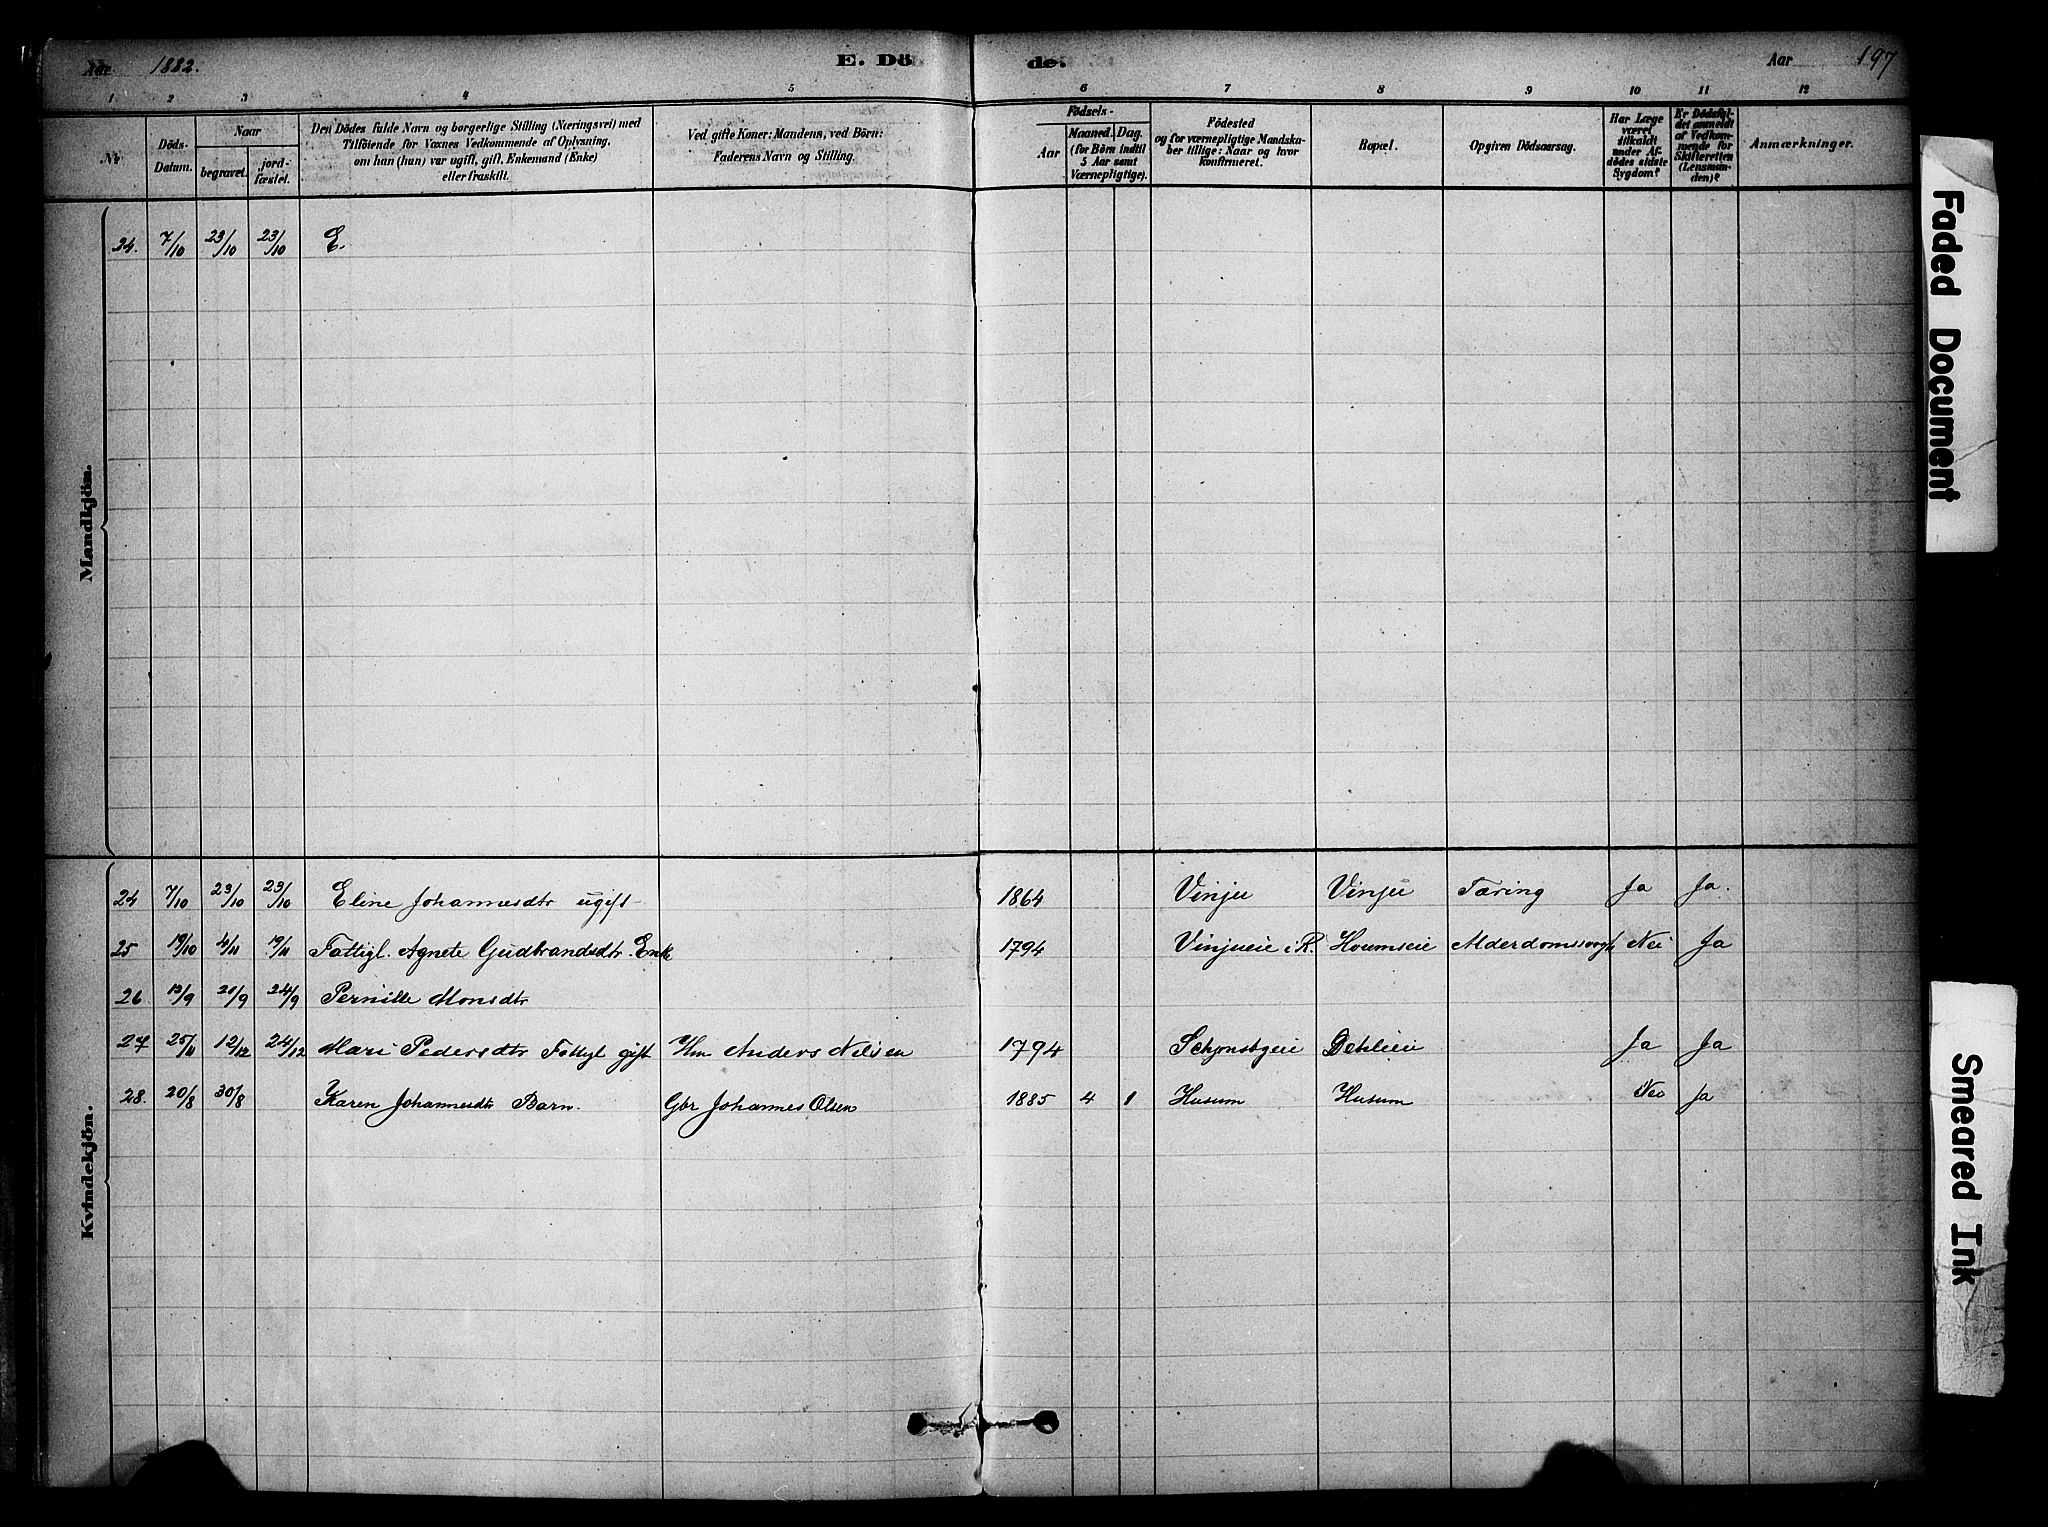 Aar 1882. E. Dö de. Aar 197
1 2 3 4 5 6 7 8 9 10 11 12
Nr.
Döds-
Datum.
Naar
begravet.
jord-
fæstet.
Den Dödes fulde Navn og borgerlige Stilling (Næringsvei) med
Tilföiende for Voxnes Vedkommende af Oplysning,
om han (hun) var ugift, gift, Enkemand (Enke)
eller fraskilt.
Ved gifte Koner: Mandens, ved Börn:
Faderens Navn og Stilling.
Födsels-
Aar
Maaned. Dag.
(for Börn indtil
5 Aar samt
Værnepligtige).
Födested
og for værnepligtige Mandska-
ber tillige: Naar og hvor
konfirmeret.
Bopæl.
Opgiven Dödsaarsag.
Har Læge
været
tilkaldt
under Af-
dödes sidste
Sygdom?
Er Dödsfal-
det anmeldt
af Vedkom-
mende for
Skifteretten
(Lensman-
den)?
Anmærkninger.
Mandkjön.
24. 7/10 23/10 23/10 E.
Kvindekjön.
24 7/10 23/10 23/10 Eline Johannesdtr ugift 1864 Vinju Vinju Tæring Ja Ja.
25 19/10 4/11 19/11 Fattigl. Agnete Gudbrandsdtr. Enke 1794 Vinjueie i R. Houmseie Alderdomssvagh Nei Ja
26 13/9 21/9 24/9 Pernille Monsdtr
27 25/11 12/12 24/12 Mari Pedersdtr Fattigl gift Anders Nilsen 1794 Ja Ja
28. 20/8 30/8 Karen Johannesdtr Barn. Gbr Johannes Olsen 1885 4 8 Husum Husum Nei Ja
Faded Document
Smeared Ink